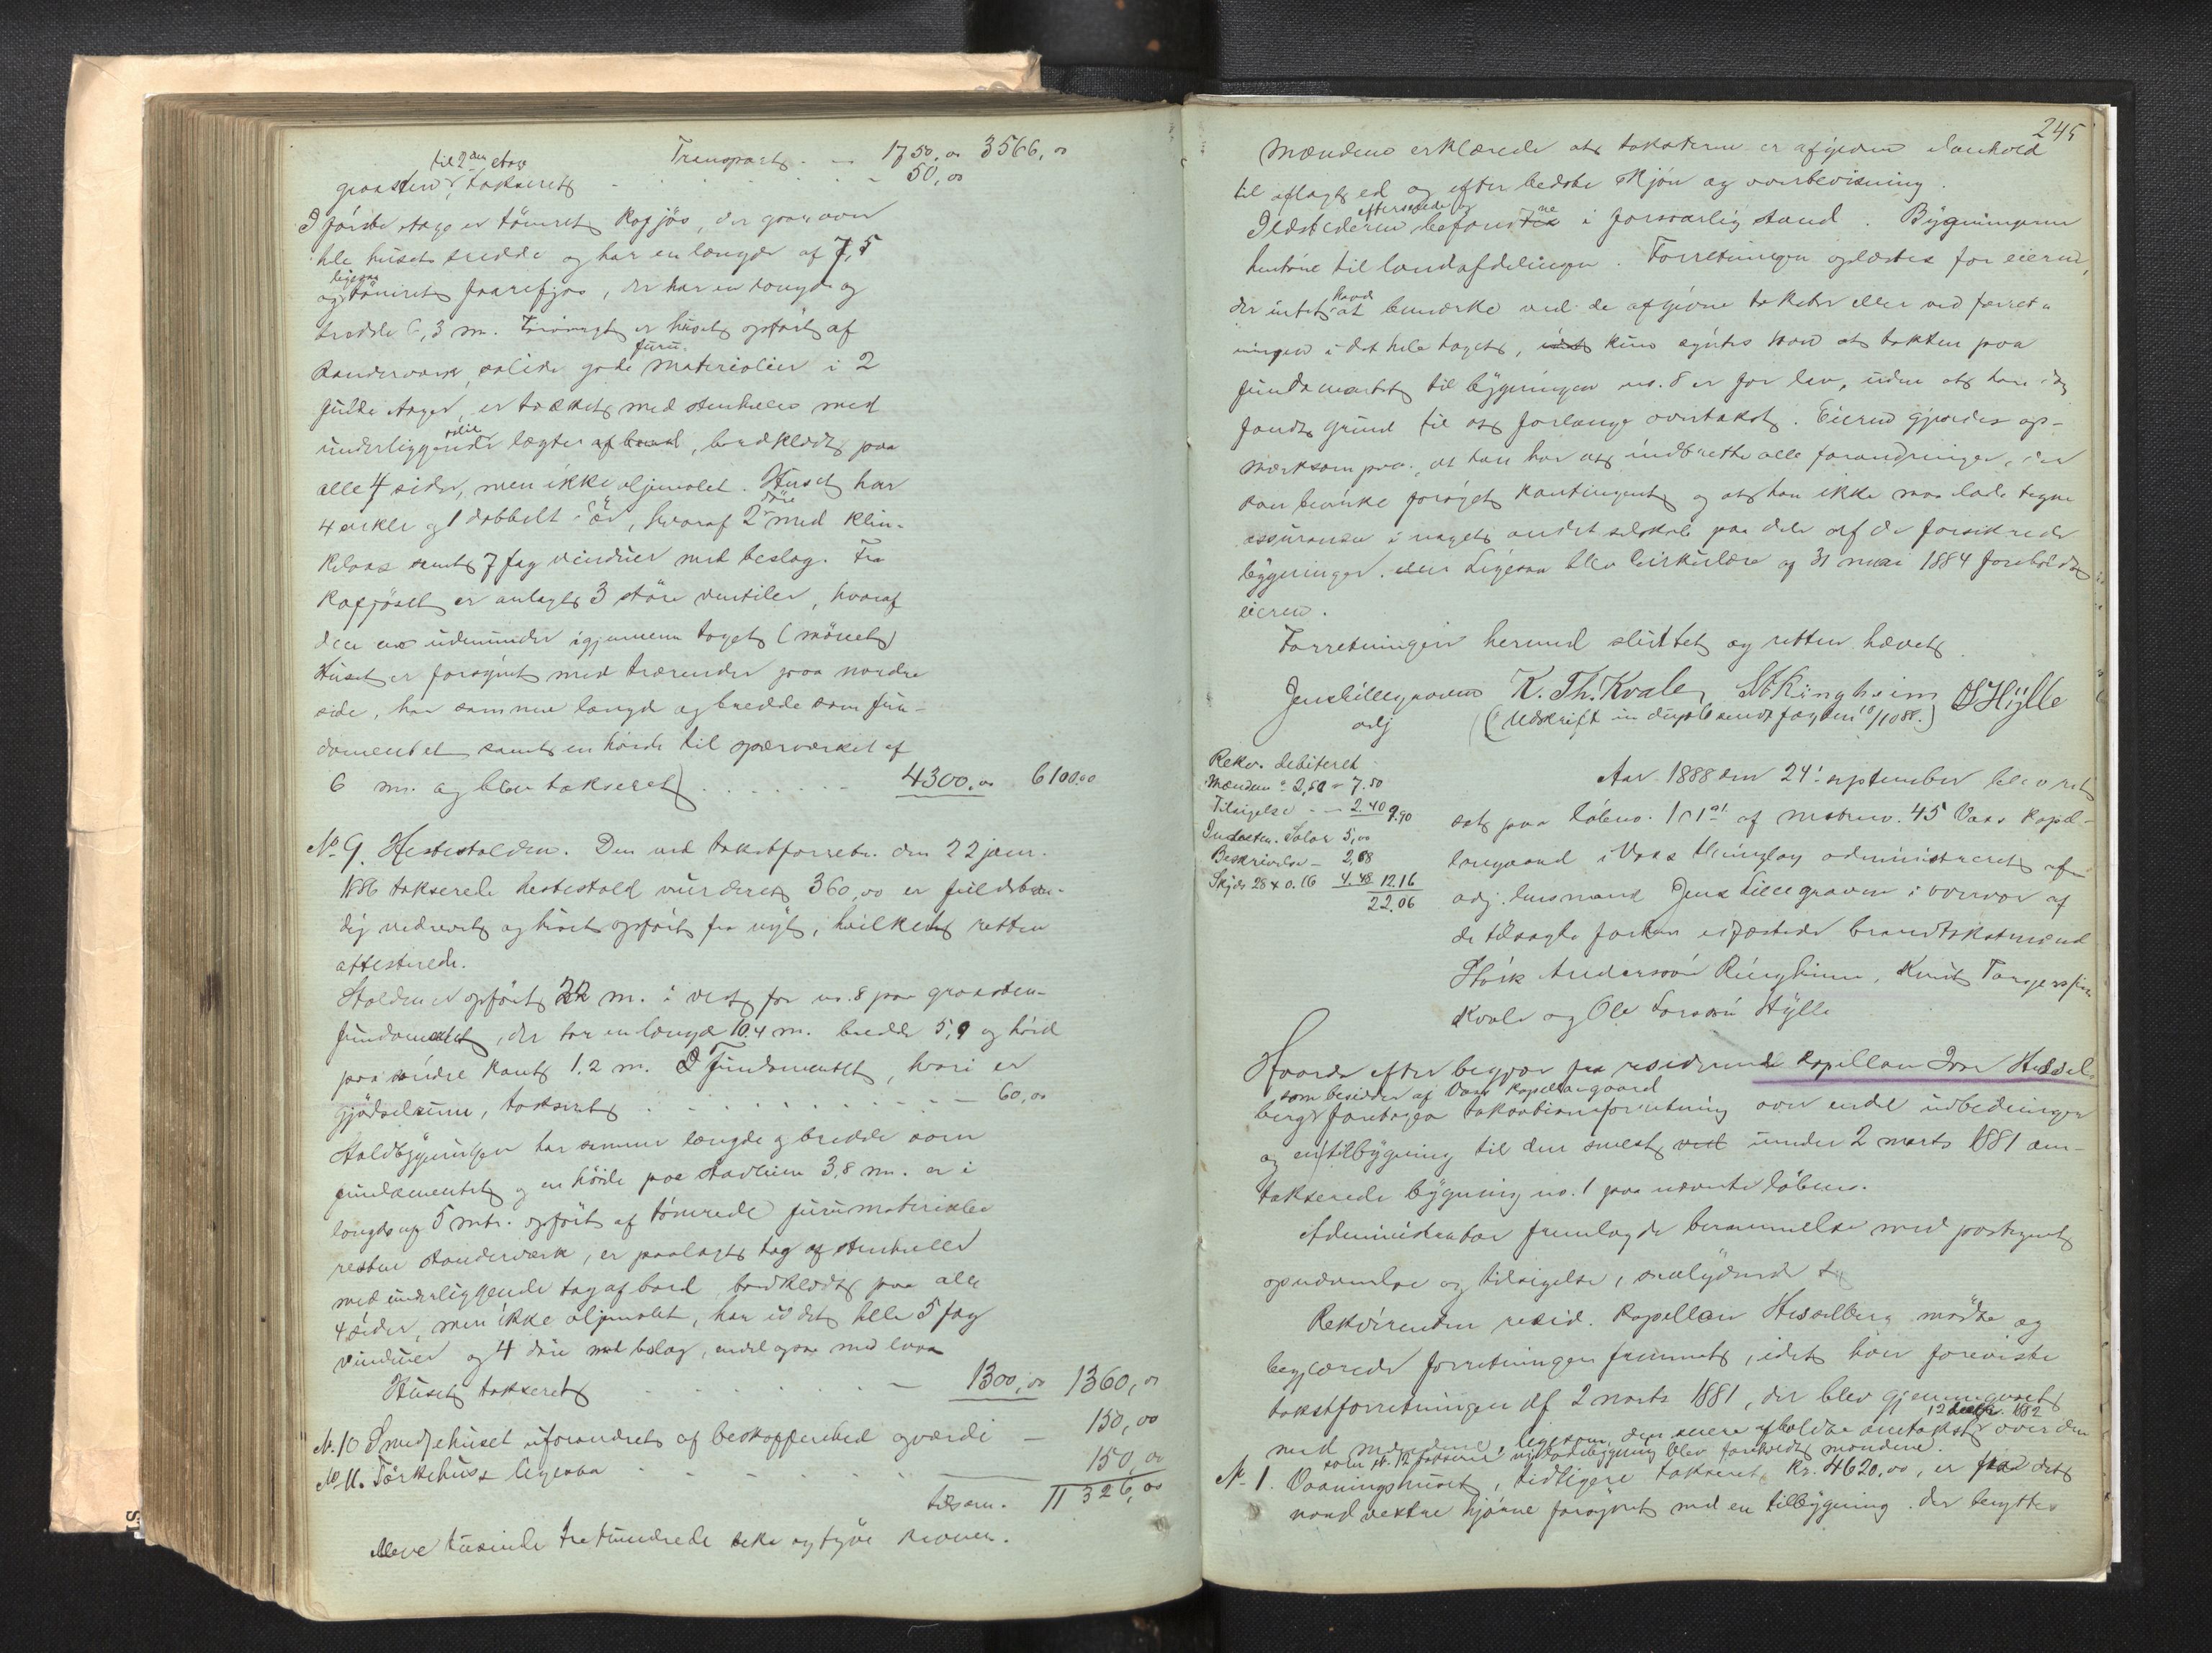 Transport - - 1750,00 3566,00
til 2den etage
graasten takseret - - - - - - 50,00
I første etage er tømret kofjøs, der gaar over
hele husets bredde og har en længde af 7,5
ligesaa
og tømret faarefjøs, der har en længde og
bredde 6,3 m. Forøvrigt er huset opført af
furu
standerværk, solide gode materialier i 2
fulde etager, er tækket med stenheller med
underliggende lægter af bord, bordklædt paa
alle 4 sider, men ikke oljemalet. Huset har
4 enkle og 1 dobbelt dør, hvoraf 2 med klin-
kelaas samt 7 fag vinduer med beslag. Fra
kofjøset er anlagt 3 større ventiler, hvoraf
den ene udmunder igjennem taget (mønet)
Huset er forsynet med trærender paa nordre
side, har samme længde og bredde som fun-
damentet samt en høide til sperværket af
6 m. og blev takseret - - - - - 4300,00 6100,00
No 9. Hestestalden. Den ved takstforretn. den 22 jan.
1886 takserede hestestald vurderet 360,00 er fuldstæn-
dig nedrevet og huset opført fra nyt, hvilket retten
attesterede.
Stalden er opført 22 m. i vest for no. 8 paa graasten-
fundamentet, der har en længde 10.4 m. bredde 5,9 og høide
paa søndre kant 1.2 m. Fundamentet, hvori er
gjødselrum, takseret - - - - - - 60,00
Staldbygningen har samme længde og bredde som
fundamentet og en høide paa 3,8 m. er i
længde 5 mtr. opført af tømrede furumaterialer
resten standerværk, er paalagt tag af stenheller
med underliggende tag af bord, bordklædt paa alle
4 sider, men ikke oljemalet, har i det hele 5 fag
vinduer og 4 døre med beslag, endel ogsaa med laase
Huset takseret - - - - - 1300,00 1360,00
No. 10 Smedjehuset uforandret af beskaffenhed og værdi - 150,00
No 11. Tørkehuss ligesaa - - - - - - 150,00
tilsam. 11 326,00
elleve tusinde trehundrede seks og tyve kroner.
245
Mændene erklærede at taksterne er afgivne i henhold
til aflagt ed og efter bedste skjøn og overbevisning.
eftersaaes og
Ildstederne befandtes i forsvarlig stand. Bygningerne
henhøre til landafdelingen. Forretningen oplæstes for eieren,
havde
der intet at bemærke ved de afgivne takster eller ved forret-
ningen i det hele taget, kun syntes han at taksten paa
fundamentet til bygningen no. 8 er for lav, uden at han dog
fandt grund til at forlange overtakst. Eieren gjordes op-
mærksom paa, at han har at indberette alle forandringer, der
kan bevirke forøget kontingent og at han ikke maa lade tegne
assurance i noget andet selskab paa dele af de forsikrede
bygninger. Ligesaa blev cirkulære af 31 mai 1884 foreholdt
eieren.
Forretningen hermed sluttet og retten hævet.
Jens Lillegraven K. Th. Kvale, StRingheim OHylle
adj (Udskrift in duplo sendt fogden 10/10 88.)
Rekv. debiteret
Mændene à 2,50 = 7.50
Tilsigelse - - 2.40 9.90
Salær 5,00
Beskrivelse - 2,68
Skyds 28 x 0.16 4.48 12.16
22.06
Aar 1888 den 24. september blev ret
sat paa løbeno. 101 a1 af matrno. 45 Vass kapel-
langaard i Voss thinglag administreret af
adj. lensmand Jens Lillegraven i overvær af
de tilsagte forhen edfæstede brandtakstmænd
Størk Andersson Ringheim, Knut Torgerssøn
Kvale og Ole Larssøn Hylle
Hvorda efter begjær fra residerende kapellan Iver Hessel-
som besidder af Vass kapellangaard
berg foretages takstationsforretning over endel udbedringer
og en tilbygning til den senest under 2 marts 1881 om-
takserede bygning no. 1 paa nævnte løbeno.
Administrator fremlagde berammelse med paategnet
opnævnelse og tilsigelse, saalydende
Rekvirenten resid. kapellan Hesselberg mødte og
begjærede forretningen fremmet, idet han foreviste
takstforretningen af 2 marts 1881, der blev gjennemgaaet
med mændene, ligesom den senere afholdte omtakst over den
som No. 12 takserede nybygning blev foreholdt mændene.
No 1. Vaaningshuset, tidligere takseret kr. 4620,00, er paa det
nordvestre hjørne forsynet med en tilbygning der benyttes